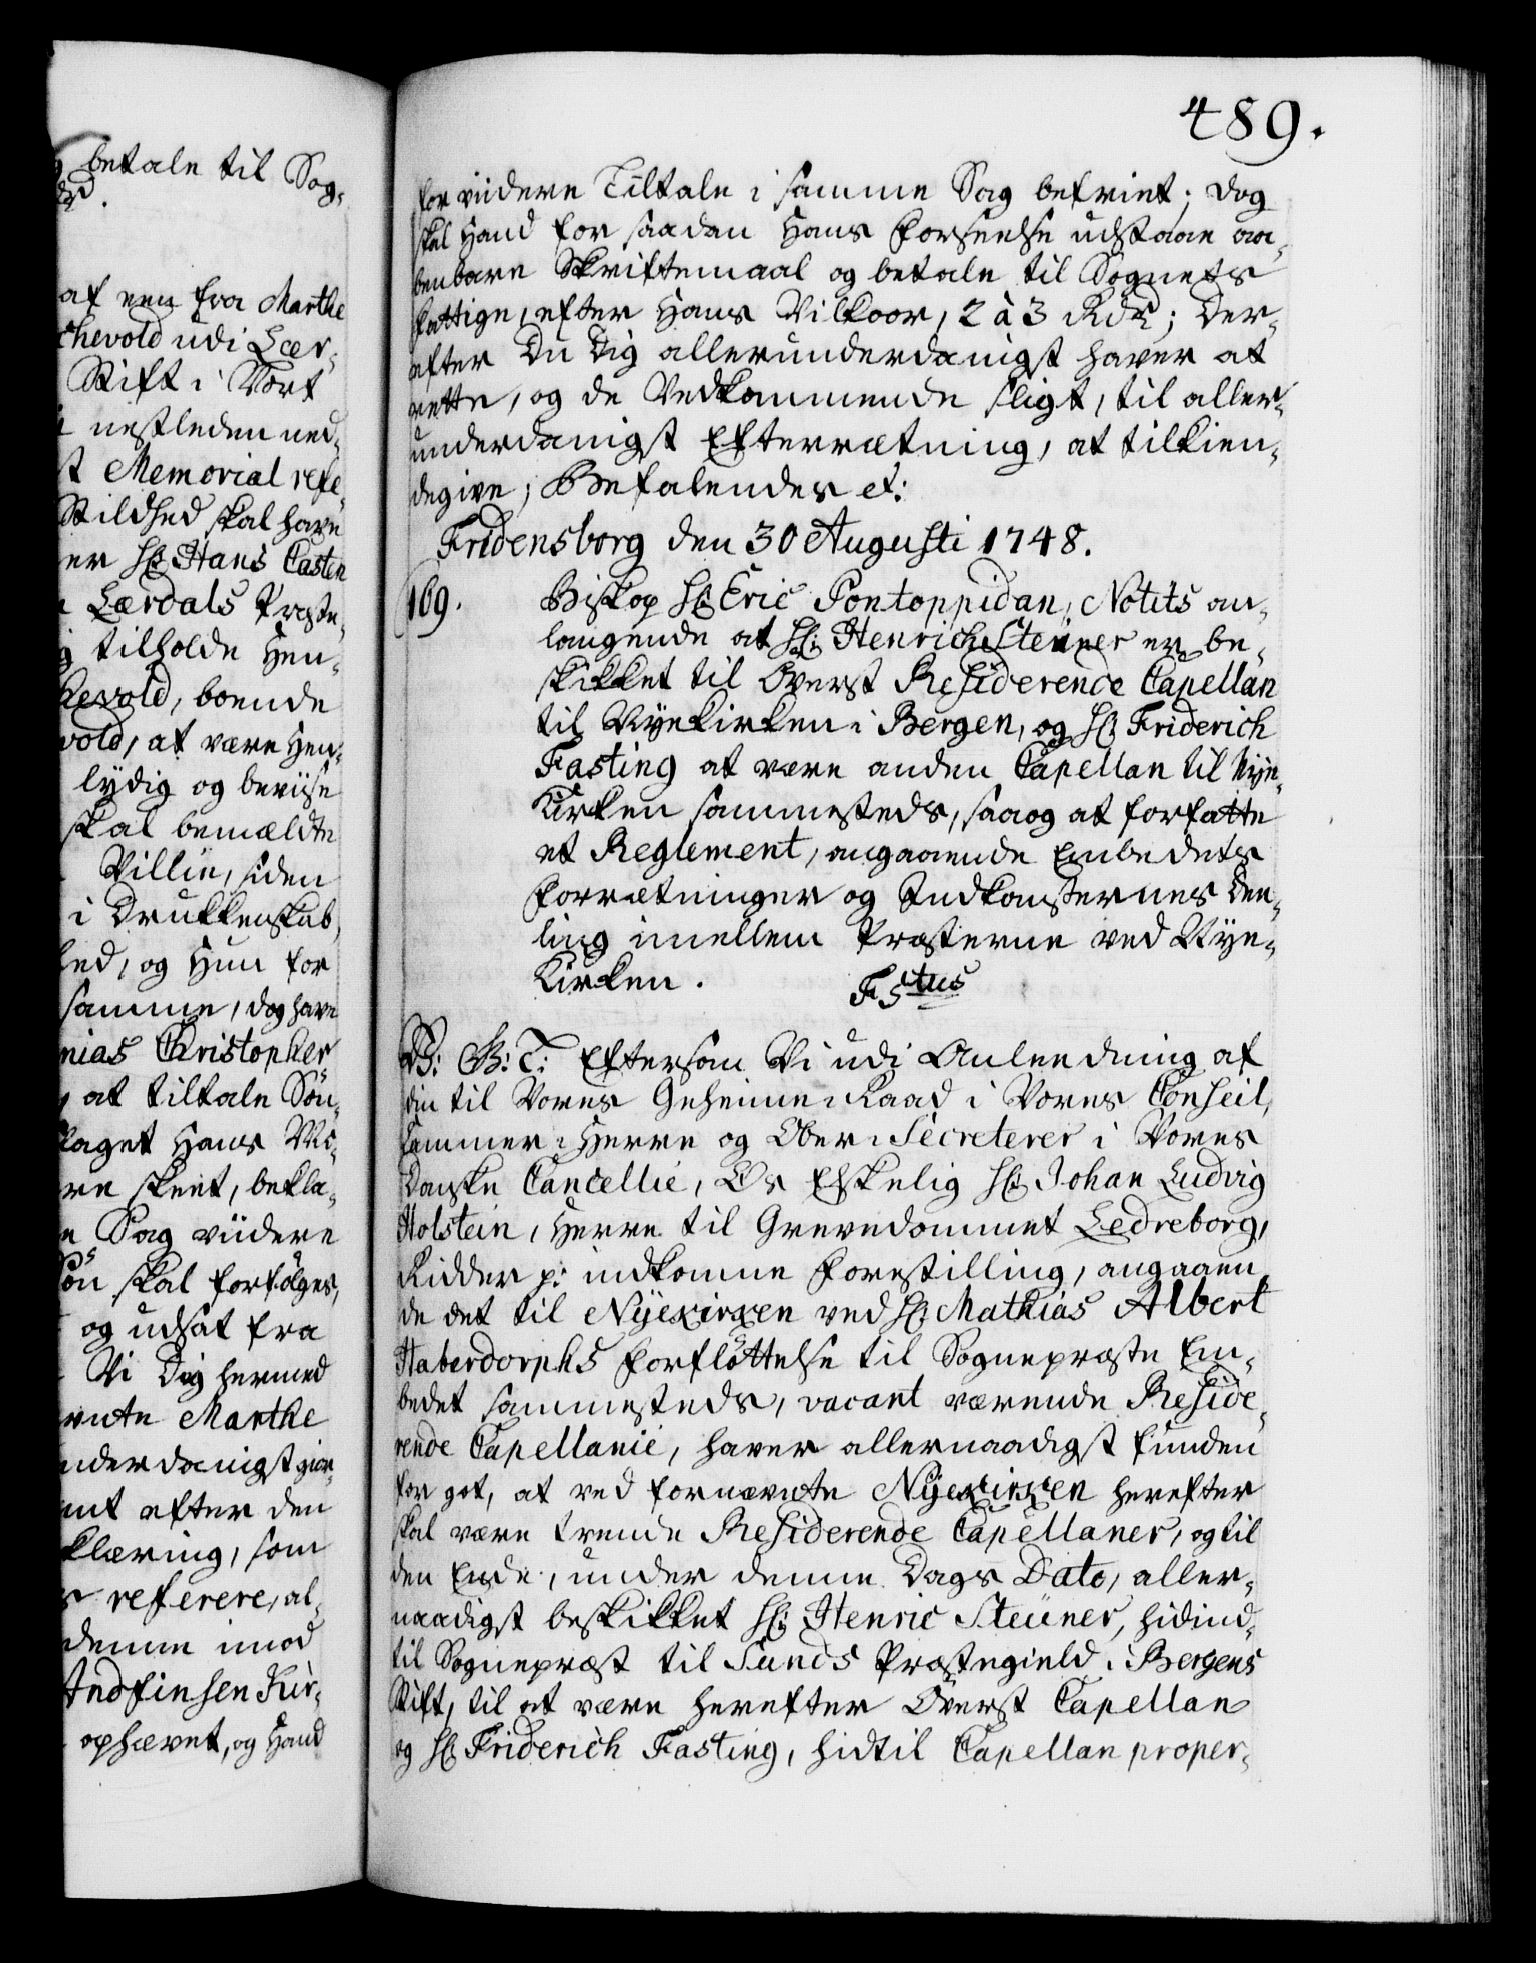 betale til Sog-
af een fra Marthe
chevold udi Lær-
Stift i Vort
nestleden ned-
st Memorial refe-
Stilshed skal have
er Hr: Hans Casten
Lærdals Præste-
tilholde Hen-
kevold, boende
vold, at være Hen-
lydig og beviise
skal bemældte
Villie, siden
i Drukkenskab,
hed, og Hun for
samme, dog have
nias Christopher
at tiltale Sön-
klaget Hans
re skeet, bekla-
Sag viidere
Sön skal forfølges,
og udsat fra
Vi Dig hermed
vnte Marthe
underdanigst giør-
mt efter den
klæring, som
referere, al-
denne imod
Andfinsen Kir-
ophævet, og Hand
489.
for viidere Tiltale i samme Sag befriet; dog
skal Hand for saadan Hans Forseelse udstaae aa-
benbare Skriftemaal og betale til Sognets
Fattige, efter Hans Vilkoor, 2 à 3 Rdr; Der-
efter Du Dig allerunderdanigst haver at
rette, og de Vedkommende sligt, til aller-
underdanigst Efterrætning, at tilkien-
degive; Befalendes et:
Fridensborg den 30 Augusti 1748.
169.
Biskop Hr: Eric Pontoppidan, Notits an-
langende at Hr: Henrich Steüner er be-
skikket til Øverst Residerende Capellan
til Nyekirken i Bergen, og Hr: Friderich
Fasting at være anden Capellan til Nye-
Kirken sammesteds, saa og at forfatte
et Reglement, angaaende Embedets
Forrætninger og Indkomsternes Dee-
ling imellem Præsterne ved Nye-
Kirken.
F5tus
V: G: T: Eftersom Vi udi Anleedning af
din til Vores Geheime-Raad i Vores Conseil,
Cammer-Herre og Ober-Secreterer i Vores
Danske Cancellie, Os Elskelig Hr: Johan Ludvig
Holstein, Herre til Grevedommet Ledreborg,
Ridder p: indkomne Forestilling, angaaen
de det til Nyekirken ved Hr: Mathias Albert
Haberdorphs Forflöttelse til Sognepræste Em-
bedet sammesteds, vacant værende Reside-
rende Capellanie, haver allernaadigst funden
for got, at ved fornævnte Nyekirken herefter
skal være tvende Residerende Capellaner, og til
den Ende, under denne Dags Dato, aller-
naadigst beskikket Hr: Henric Steüner, hidind-
til Sognepræst til Sunds Præstegield i Bergens
Stift, til at være herefter Øverst Capellan
og Hr: Friderich Fasting, hidtil Capellan proper-